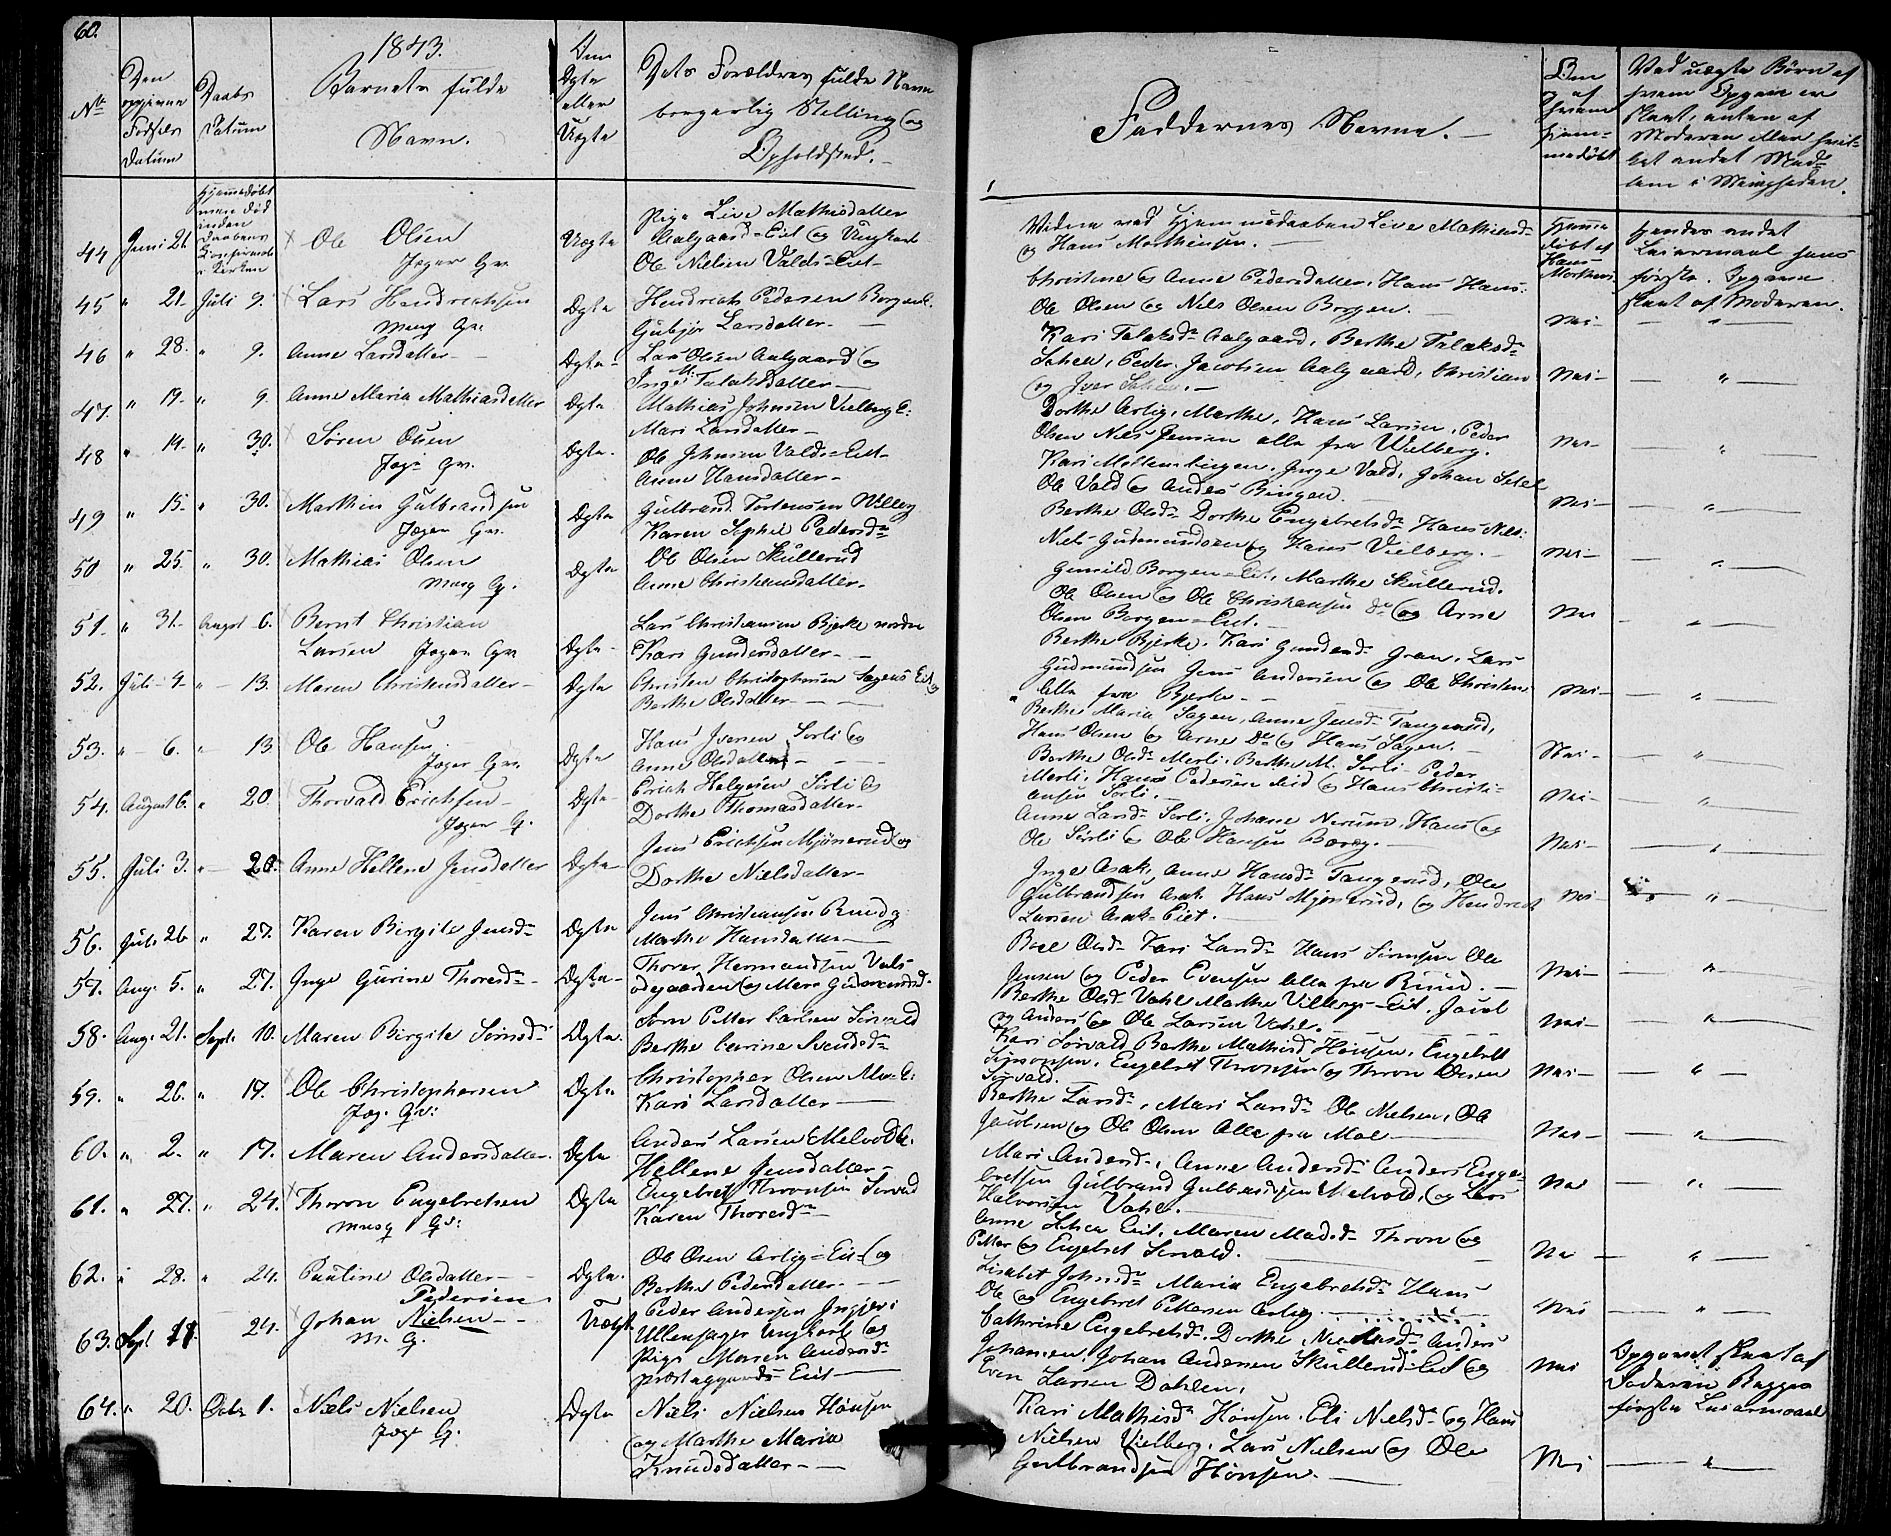 60.
1843.
No
Den opgivne Fødsels Datum
Daabs Datum
Barnets fulde Navn.
Om Ægte eller Uægte
Dets Forældres fulde Navn borgerlig Stilling og Opholdsted.
Faddernes Navne.
Om og af hvem hjemmedøbt
Ved uægte Børn af hvem Opgave er skeet, enten af Moderen eller hvilket andet Medlem i Menigheden.
44 Juni 21. Hjemmedøbt men død inden Daabens Confirmat. i Kirken
Ole Olsen
Uægte
Pige Live Mathisdatter
Aalgaard-Eiet og Ungkarl
Ole Nielsen Valds-Eiet
Vidne ved Hjemmedaaben Live Mathiesd.
og Hans Mathiesen.
Hjemmedøbt af Hans Mathies.
hendes andet Leiermaal hans første. Opgave skeet af Moderen.
45 " 21. Juli 9. Lars Hendrichsen
Ægte
Hendrich Pedersen Borgen E.
Gubjør Larsdatter
Christine og Anne Pedersdatter, Hans Hans.
Ole Olsen og Nils Olsen Borgen.
Nei "
46 " 28. " 9. Anne Larsdatter
Ægte
Lars Olsen Aalgaard og
Inge M. Talaksdatter
Kari Talaksdr Aalgaard, Berthe Talaksdr
Peder Jacobsen Aalgaard, Christian
og Iver
Nei "
47. " 19. " 9. Anne Maria Mathiasdatter
Ægte
Mathias Johnsen Vielberg E.
Mari Larsdatter
Dorthe Arlig, Marthe, Hans Larsen, Peder
Olsen Niels Jensen alle fra Wielberg.
Nei "
48 " 14. " 30. Søren Olsen
Ægte
Ole Johnsen Valds-Eiet
Anne Hansdatter
Inge Vald, Johan
Ole Vald og Andes Bingen.
Nei "
49 " 15. " 30. Mathias Gulbrandsen
Ægte
Gulbrand Torstensen
Karen Sophie Pedersdr
Berthe Olsdr Dorthe Engebretsdr Hans Nils.
Niels Gudmundsen og Hans Vielberg.
Nei "
50 " 25. " 30. Mathias Olsen
Ægte
Ole Olsen Skullerud
Anne Christiansdatter
Gunild Borgen-Eiet, Marthe Skullerud.
Ole Olsen og Ole Christiansen do og Arne
Olsen Borgen-Eiet.
Nei "
51. " 31. August 6. Bernt Christian
Larsen
Ægte
Lars Christiansen Bjerke nordre
Kari Gundersdatter
Berthe Bjerke, Kari Gundersd. Gran, Lars
Gudmundsen Jens Andersen og Ole Christens.
Alle fra Bjerke
Nei "
52. Juli 9 " 13. Maren Christensdatter
Ægte
Christen Christophersen Sagens Eiet og
Berthe Olsdatter
Berthe Maria Sagen, Anne Jensdr Tangerud,
Hans Olsen og Arne do og Hans Sagen.
Nei "
53. " 6. " 13 Ole Hansen
Ægte
Hans Iversen Sørli og
Anne Olsdatter
Berthe Olsdr Merli, Berthe M. Sørli Peder
Merli, Hans Pedersen Eid og Hans Christiansen Sørli.
Nei "
54. August 6. " 20. Thorvald Erichsen
Ægte
Erich Helgesen Sørli og
Dorthe Thomasdatter
Anne Larsdr Sørli, Johane Nerum, Hans og
Ole Sørli og Ole Hansen
Nei "
55. Juli 3. " 20. Anne Hellene Jensdatter
Ægte
Jens Erichsen Mjønerud og
Dorthe Nielsdatter
Inge Asak, Anne Hansdr Tangerud, Ole
Gulbrandsen Asak Hans Mjønerud, og Hendrich
Larsen Asak-Eiet.
Nei "
56. Juli 26 " 27. Karen Birgite Jensdr
Ægte
Jens Christiansen Rud og
Marthe Hansdatter
Olsdr Kari Larsdr Hans Simensen Ole
Jensen og Peder Evensen Alle fra Ruud.
Nei "
57. Aug. 5. " 27. Inge Gurine Thoresdr
Ægte
Thorer Hermandsen Valsødegaarden og Mari Gudmundsd.
Berthe Olsdr Vahl Marthe Villberg-Eiet, Jacob
og Anders og Ole Larsen Vahl.
Nei "
58. Aug. 21. Sept. 10. Maren Birgite Sørnsdr
Ægte
Sørn Petter Carlsen Sørvald
Berthe Carine Svendsdr
Kari Sørvald Berthe Mathisd. Hønsen, Engebret
Simonsen, Engebret Thronsen og Thron Olsen
Sørvald.
Nei "
59. " 26. " 17. Ole Christophersen
Ægte
Christopher Olsen Moe E.
Kari Larsdatter
Berthe Larsdr, Mari Larsdr Ole Nielsen, Ole
Jacobsen og Ole Olsen Alle fra Moe
Nei "
60. " 2. " 17. Maren Andersdatter
Ægte
Anders Larsen Melvold E.
Hellene Jensdatter
Mari Andersd., Anne Andersdr Anders Engebretsen Gulbrand Gulbrandsen Melvold, og Lars
Halvorsen Vahl.
Nei "
61. " 27. " 24. Thron Engebretsen
Ægte
Engebret Thronsen Sørvald
Karen Thoresdr
Anne Eiet, Maren Madsdr Thron og
Petter og Engebret Sørvald.
Nei "
62. " 28. " 24. Pauline Olsdatter
Ægte
Ole Olsen Arlig-Eiet og
Berthe Pedersdatter
Lisabet Johnsdr Maria Engebretsdr Hans
Ole og Engebret Pettersen Arlig.
Nei "
63. Sept. 11. 24. Johan Pedersen Nielsen
Uægte
Peder Andersen Ingjeri
Ullensager Ungkarl og
Pige Maren Andersdr
Præstegaards-Eiet
Cathrine Engebretsdr Dorthe Nielsdr Anders
Johansen, Johan Andersen Skullerud-Eiet og
Even Larsen Dahlen.
Nei
Opgavet skeet af Faderen Begges første Leiermaal
64. " 20. Octbr 1. Niels Nielsen
Ægte
Niels Nielsen Hønsen
og Marthe Maria
Knudsdatter
Kari Mathisdr Hønsen, Eli Nielsdr og Hans
Nielsen Vielberg, Lars Nielsen og Ole
Gulbrandsen Hønsen.
Nei "